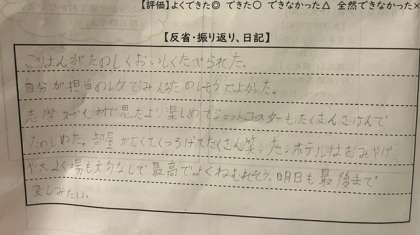 【評価】よくできた◎ できた○ できなかった△ 全然できなかった×
【反省・振り返り、日記】
ごはんがたのしくおいしくたべられた。
自分が担当のレクでみんなたのしそうでよかった。
思ったより楽しめてジェットコースターもたくさんさけんで
たのしめた。部屋がくくつろげてたくさん笑った。ホテルはおみやげ
やスよく場も大きなしで最高でよくねむれそう。明日も最後まで
楽しみたい。